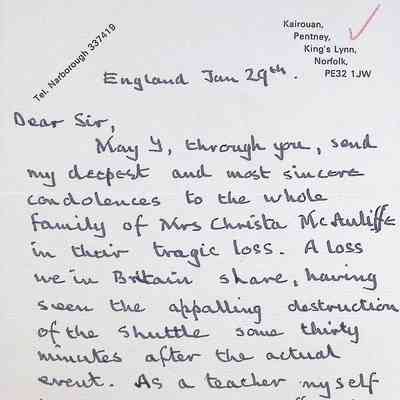 Tel. Narborough 337419
Kairouan,
Pentney,
King's Lynn,
Norfolk,
PE32 1JW
England Jan 29th.
Dear Sir,
May I, through you, send
my deepest and most sincere
condolences to the whole
family of Mrs Christa McAuliffe
in their tragic loss. A loss
we in Britain share, having
seen the appalling destruction
of the Shuttle some thirty
minutes after the actual
event. As a teacher myself